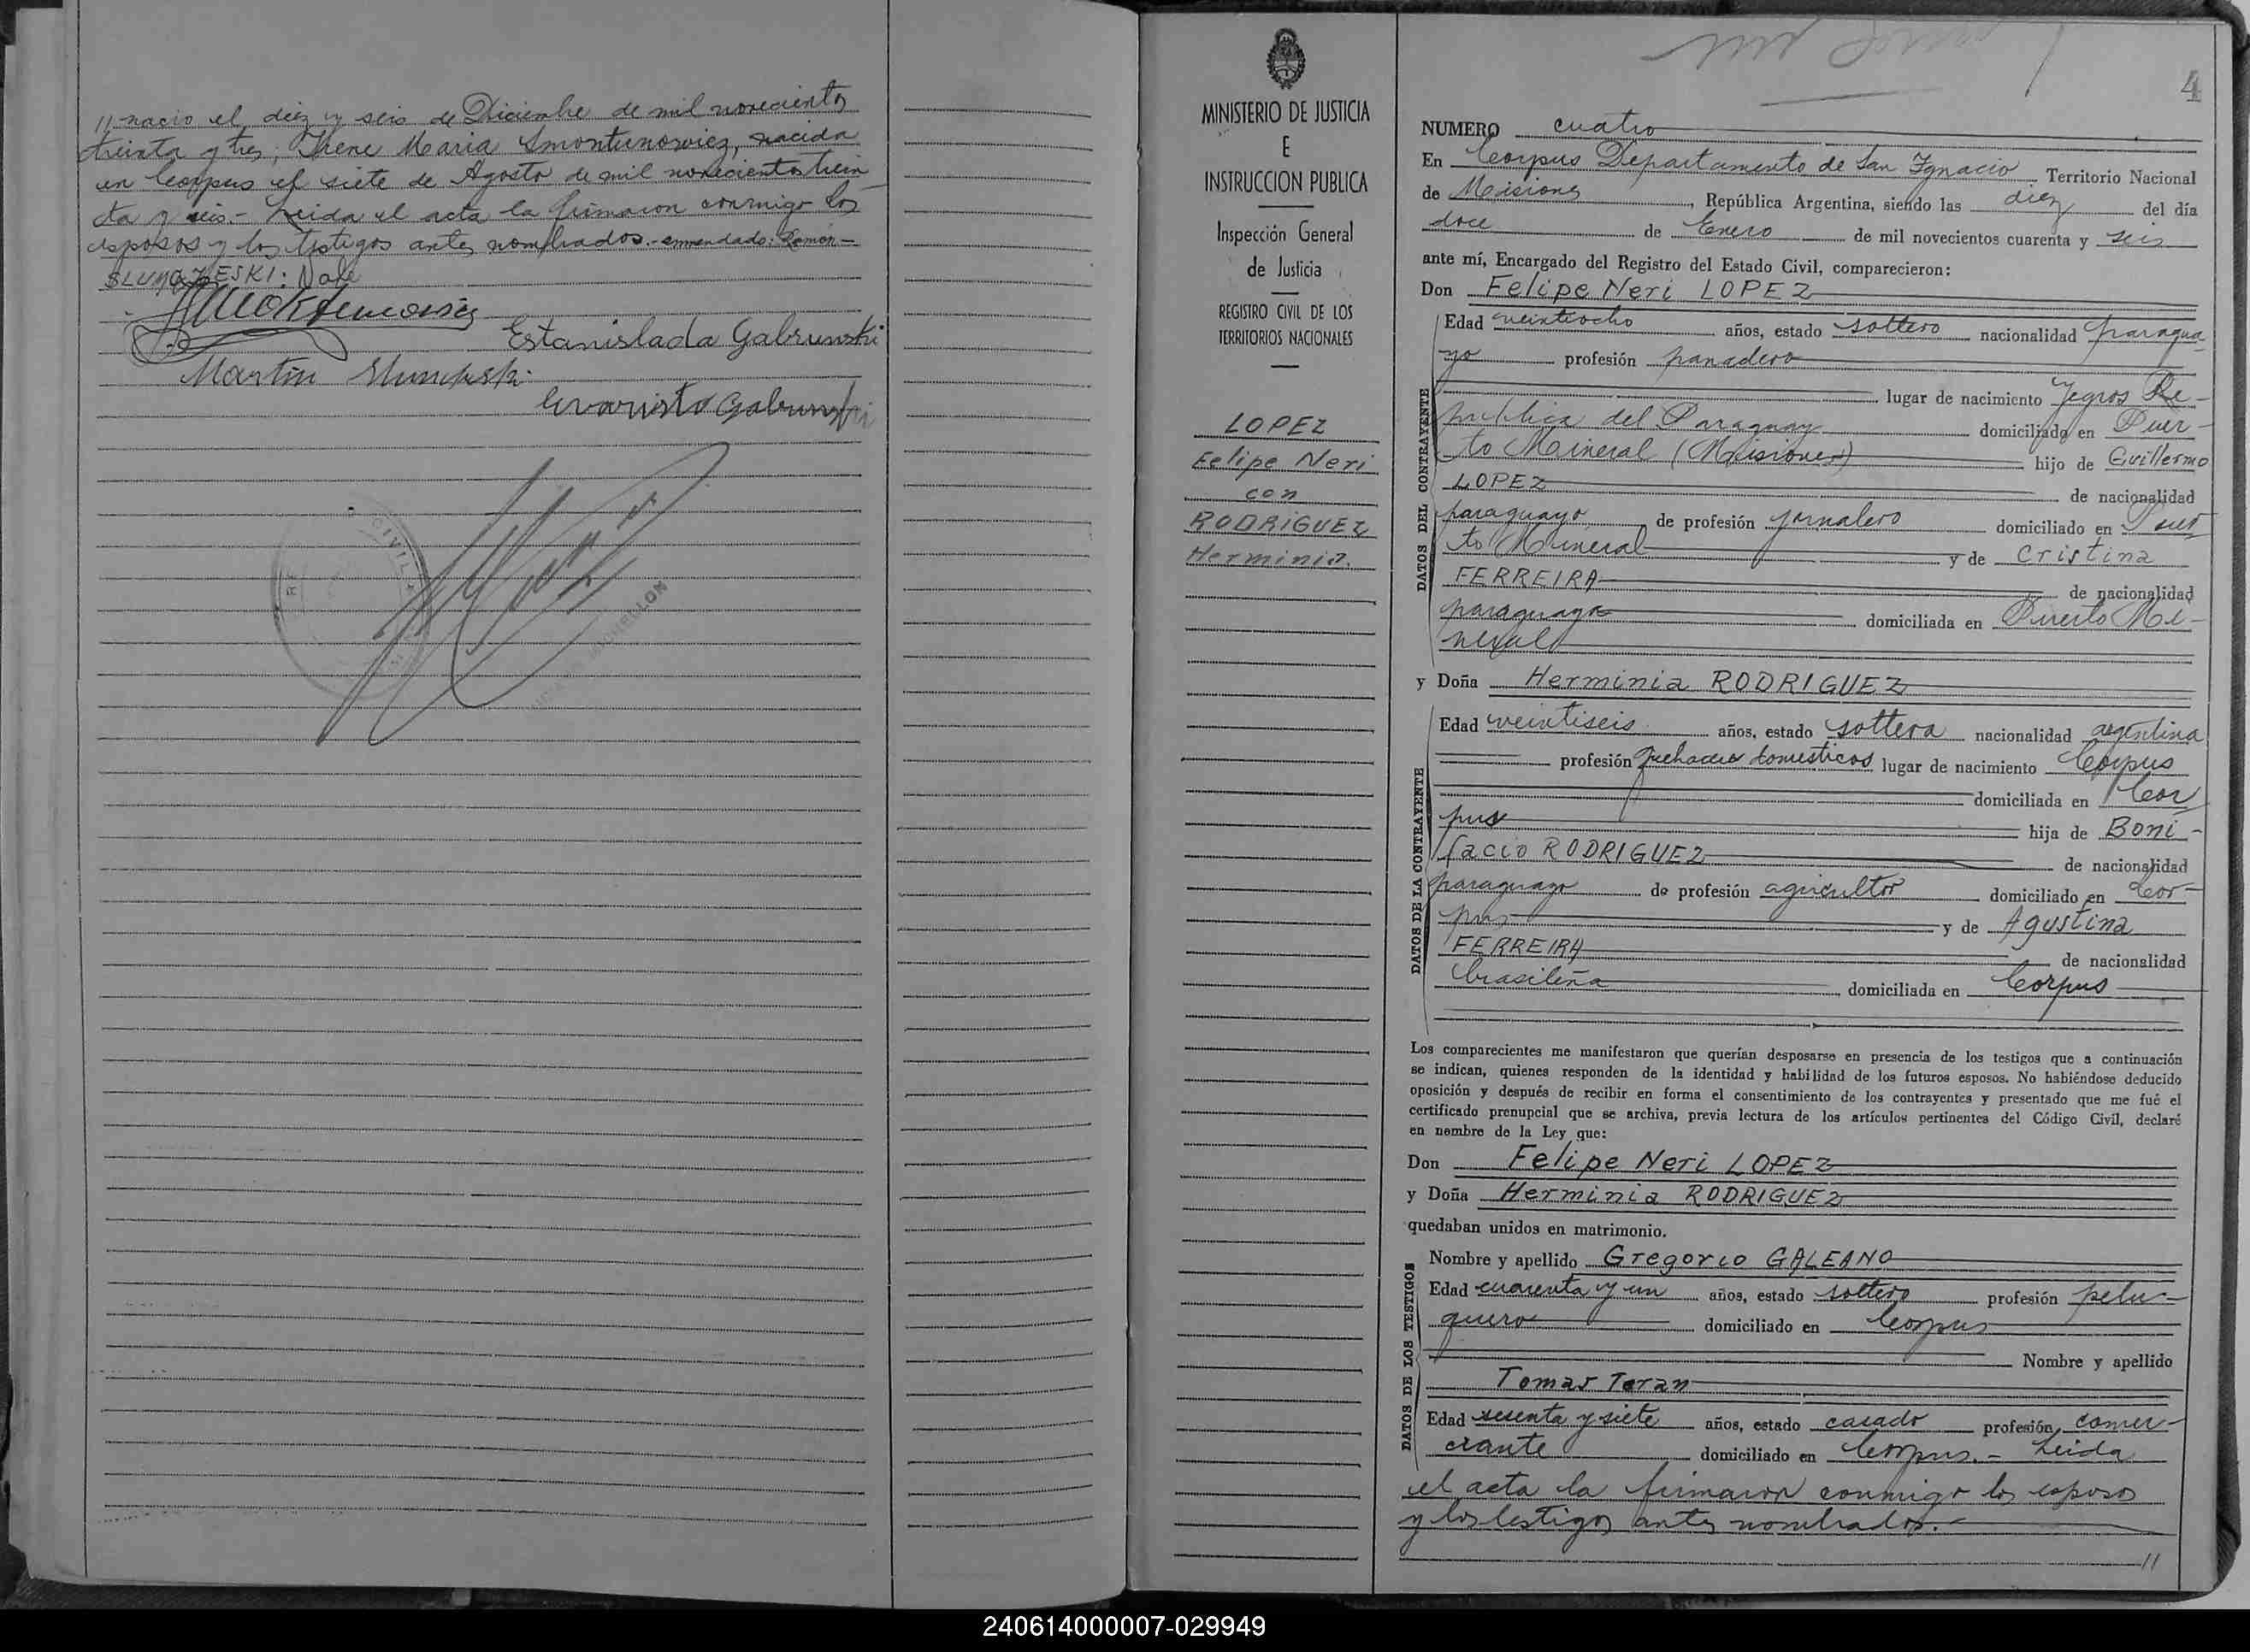 // nacio el diez y seis de Diciembre de mil novecientos
treinta y tres; Irene Maria Smontunowicz, nacida
en Corpus el siete de Agosto de mil novecientos trein
ta y seis.- Leida el acta la firmaron conmigo los
esposos y los testigos antes nombrados.- enmendado: Ramón -
: Vale
Estanislada Gabrunski
Martin
Evaristo Gabrunski
CIVIL
MINISTERIO DE JUSTICIA
E
INSTRUCCION PUBLICA
Inspección General
de Justicia
REGISTRO CIVIL DE LOS
TERRITORIOS NACIONALES
LOPEZ
Felipe Neri
con
RODRIGUEZ
Herminia.
4
NUMERO cuatro
En Corpus Departamento de San Ignacio Territorio Nacional
de Misiones, República Argentina, siendo las diez del día
doce de Enero de mil novecientos cuarenta y seis
ante mí, Encargado del Registro del Estado Civil, comparecieron:
Don Felipe Neri LOPEZ
DATOS DEL CONTRAYENTE
Edad veintiocho años, estado soltero nacionalidad paragua
yo profesión panadero
lugar de nacimiento Yegros Re-
publica del Paraguay domiciliado en Puer-
to Mineral (Misiones) hijo de Guillermo
LOPEZ de nacionalidad
paraguayo de profesión jornalero domiciliado en Puer
to Mineral y de Cristina
FERREIRA de nacionalidad
paraguaya domiciliada en Puerto Mi-
neral
y Doña Herminia RODRIGUEZ
DATOS DE LA CONTRAYENTE
Edad veintiseis años, estado soltera nacionalidad argentina
profesión quehaceres domesticos lugar de nacimiento Corpus
domiciliada en Cor
pus hija de Boni-
facio RODRIGUEZ de nacionalidad
paraguayo de profesión agricultor domiciliado en Cor-
pus y de Agustina
FERREIRA de nacionalidad
brasileña domiciliada en Corpus
Los comparecientes me manifestaron que querían desposarse en presencia de los testigos que a continuación
se indican, quienes responden de la identidad y habilidad de los futuros esposos. No habiéndose deducido
oposición y después de recibir en forma el consentimiento de los contrayentes y presentado que me fué el
certificado prenupcial que se archiva, previa lectura de los artículos pertinentes del Código Civil, declaré
en nombre de la Ley que:
Don Felipe Neri LOPEZ
y Doña Herminia RODRIGUEZ
quedaban unidos en matrimonio.
DATOS DE LOS TESTIGOS
Nombre y apellido Gregorio GALEANO
Edad cuarenta y un años, estado soltero profesión pelu-
quero domiciliado en Corpus
Nombre y apellido
Tomas Teran
Edad sesenta y siete años, estado casado profesión comer-
ciante domiciliado en Corpus.- Leida
el acta la firmaron conmigo los esposos
y los testigos antes nombrados.-
//
240614000007-029949